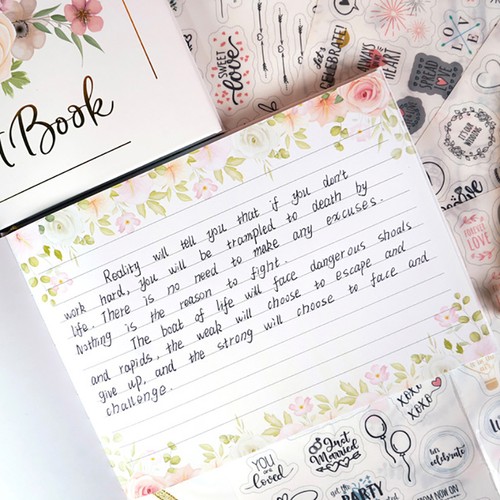 t Book
SWEET
love
Let's
CELEBRATE!
ALWAYS
my
HEART
SPREAD
LOVE
LOVE
IT'S OUR
WEDDING
FOREVER
LOVE
Reality will tell you that if you don't
work hard, you will be trampled to death by
life. There is no need to make any excuses.
Nothing is the reason to fight.
The boat of life will face dangerous shoals
and rapids, the weak will choose to escape and
give up, and the strong will choose to face and
challenge.
XOXO
XOXO
YOU
are
Loved
Just
Married
PARTY
let's
celebrate